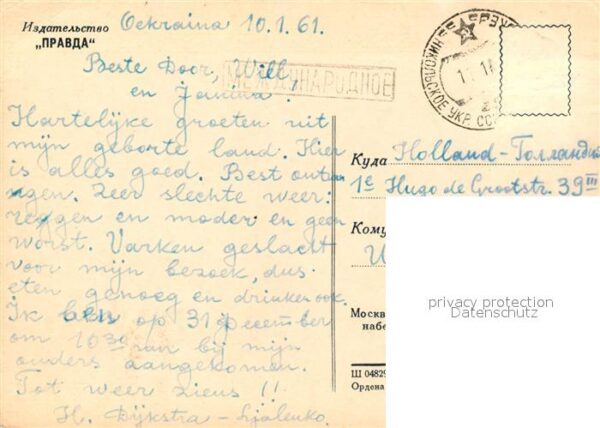 Издательство
„ПРАВДА“
Oekraina 10.1.61.
Beste Door, Will,
en Janina.
МЕЖДУНАРОДНОЕ
Hartelijke groeten uit
mijn geborte land. Hier
is alles goed. Best ontva
ngen. Zeer slechte weer:
reggen en moder en geen
worst. Varken geslacht
voor mijn bezoek, dus
eten genoeg en drinken ook.
Ik ben op 31 December
om 10³⁰ van bij mijn
ouders aangekomen.
Tot weer ziens !!
H. Dijkstra - Ljalenko.
НИКОЛЬСКОЕ УКР. ССР
Куда Holland - Голландия
1e Hugo de Grootstr. 39 III
Кому
Москва
набе
Ш 04829
Ордена
privacy protection
Datenschutz